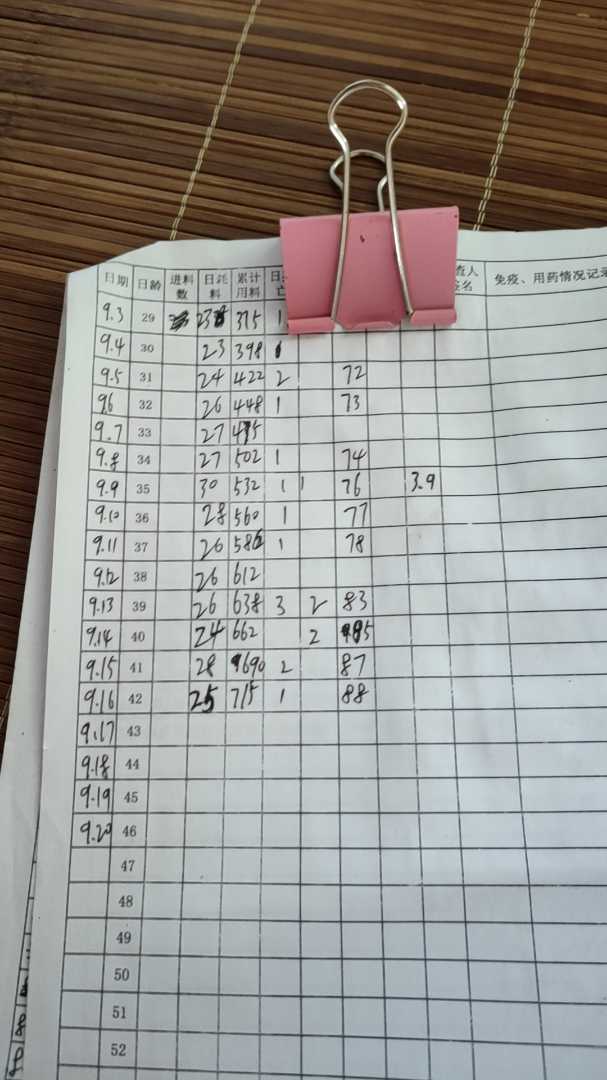 日期 日龄 进料数 日耗料 累计用料 日 亡 查人签名 免疫、用药情况记录
9.3 29 23 375 1
9.4 30 23 398
9.5 31 24 422 2 72
9.6 32 26 448 1 73
9.7 33 27 475
9.8 34 27 502 1 74
9.9 35 30 532 1 1 76 3.9
9.10 36 28 560 1 77
9.11 37 26 586 1 78
9.12 38 26 612
9.13 39 26 638 3 2 83
9.14 40 24 662 2 85
9.15 41 28 690 2 87
9.16 42 25 715 1 88
9.17 43
9.18 44
9.19 45
9.20 46
47
48
49
50
51
52